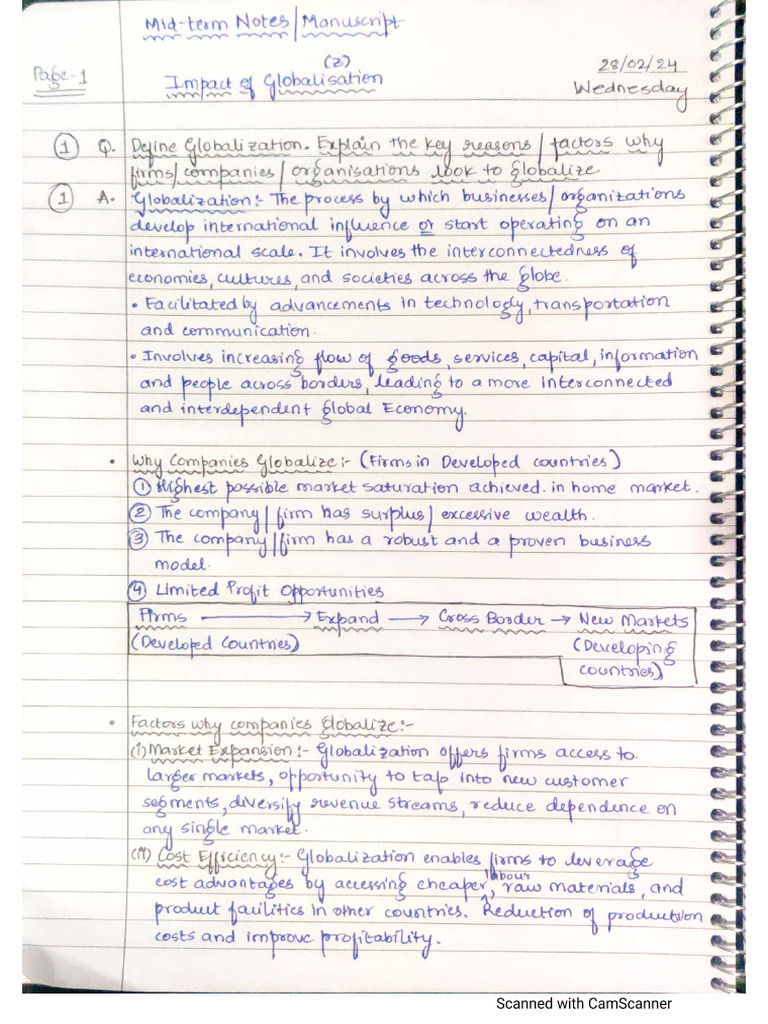 Mid-term Notes/Manuscript
(2)
Page-1
Impact of Globalisation
28/02/24
Wednesday
① Q. Define Globalization. Explain the key reasons/factors why
firms/companies/organisations look to globalize
① A. Globalization:- The process by which businesses/organizations
develop international influence or start operating on an
international scale. It involves the interconnectedness of
economies, cultures, and societies across the globe.
• Facilitated by advancements in technology, transportation
and communication.
• Involves increasing flow of goods, services, capital, information
and people across borders, leading to a more interconnected
and interdependent global Economy.
• Why Companies Globalize:- (Firms in Developed countries)
① Highest possible market saturation achieved. in home market.
② The company/firm has surplus/excessive wealth.
③ The company/firm has a robust and a proven business
model.
④ Limited Profit Opportunities
Firms → Expand → Cross Border → New Markets
(Developed Countries) (Developing
countries)
• Factors why companies globalize:-
(i) Market Expansion:- Globalization offers firms access to
larger markets, opportunity to tap into new customer
segments, diversify revenue streams, reduce dependence on
any single market.
(ii) Cost Efficiency:- Globalization enables firms to leverage
cost advantages by accessing cheaper labour, raw materials, and
product failities in other countries. Reduction of production
costs and improve profitability.
Scanned with CamScanner